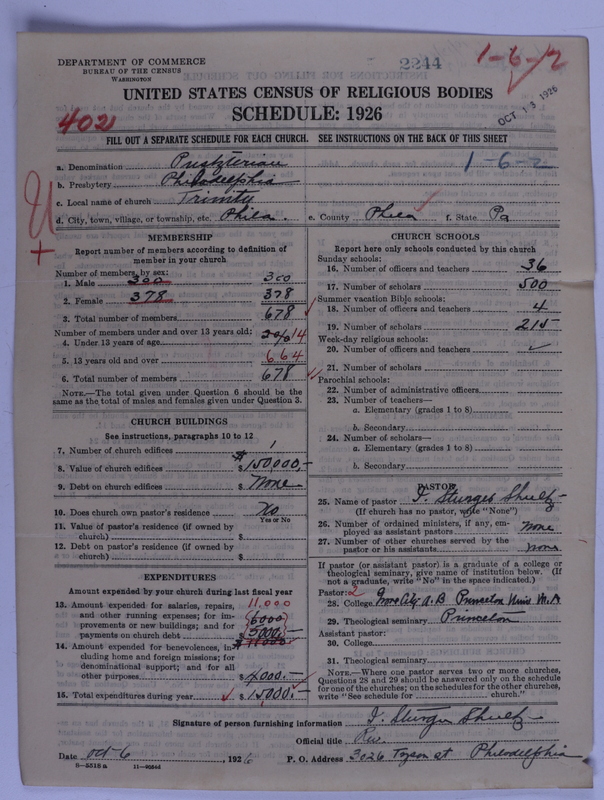 DEPARTMENT OF COMMERCE
BUREAU OF THE CENSUS
WASHINGTON
2244
1-6-2
UNITED STATES CENSUS OF RELIGIOUS BODIES
SCHEDULE: 1926
OCT 13 1926
402
FILL OUT A SEPARATE SCHEDULE FOR EACH CHURCH. SEE INSTRUCTIONS ON THE BACK OF THIS SHEET
1-6-2
a. Denomination Presbyterian
b. Presbytery Philadelphia
c. Local name of church Trinity
d. City, town, village, or township, etc. Phila. e. County Phila f. State Pa
MEMBERSHIP
Report number of members according to definition of
member in your church
Number of members, by sex:
1. Male 300 300
2. Female 378 378
3. Total number of members 678
Number of members under and over 13 years old:
4. Under 13 years of age 14
5. 13 years old and over 664
6. Total number of members 678
NOTE.—The total given under Question 6 should be
same as the total of males and females given under Question 3.
CHURCH BUILDINGS
See instructions, paragraphs 10 to 12
7. Number of church edifices 1
8. Value of church edifices $150,000.—
9. Debt on church edifices $ None
10. Does church own pastor's residence No
Yes or No
11. Value of pastor's residence (if owned by
church) $
12. Debt on pastor's residence (if owned by
church) $
EXPENDITURES
Amount expended by your church during last fiscal year
13. Amount expended for salaries, repairs, 11,000
and other running expenses; for im- 6000
provements or new buildings; and for
payments on church debt 5000.—
$11000
14. Amount expended for benevolences, in-
cluding home and foreign missions; for
denominational support; and for all
other purposes $4000.—
15. Total expenditures during year $15000.—
CHURCH SCHOOLS
Report here only schools conducted by this church
Sunday schools:
16. Number of officers and teachers 36
17. Number of scholars 500
Summer vacation Bible schools:
18. Number of officers and teachers 4
19. Number of scholars 215
Week-day religious schools:
20. Number of officers and teachers
21. Number of scholars
Parochial schools:
22. Number of administrative officers
23. Number of teachers—
a. Elementary (grades 1 to 8)
b. Secondary
24. Number of scholars—
a. Elementary (grades 1 to 8)
b. Secondary
PASTOR
25. Name of pastor I. Sturges Shultz
(If church has no pastor, write "None")
26. Number of ordained ministers, if any, em-
ployed as assistant pastors None
27. Number of other churches served by the
pastor or his assistants None
If pastor (or assistant pastor) is a graduate of a college or
theological seminary, give name of institution below. (If
not a graduate, write "No" in the space indicated.)
Pastor: 2
28. College Grove City A.B Princeton Univ M.A
29. Theological seminary Princeton
Assistant pastor:
30. College
31. Theological seminary
NOTE.—Where one pastor serves two or more churches,
Questions 28 and 29 should be answered only on the schedule
for one of the churches; on the schedules for the other churches,
write "See schedule for church."
Signature of person furnishing information I. Sturges Shultz
Official title Rev.
Date Oct-6, 1926 P. O. Address 3026 Tyson St Philadelphia
8—5518 a 11—9864d